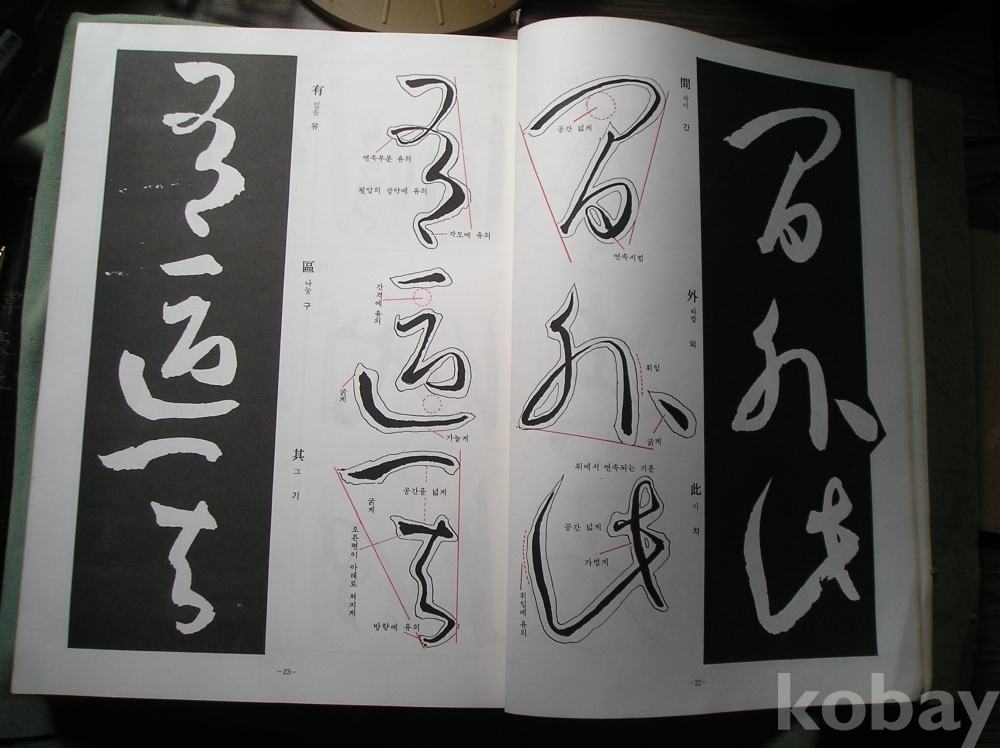 間 사이 간
공간 넓게
연속시킴
外 바깥 외
휘임
굵게
위에서 연속되는 기분
此 이 차
공간 넓게
가볍게
휘임에 유의
―22―
有 있을 유
연속부분 유의
필압의 강약에 유의
각도에 유의
區 나눌 구
간격에 유의
굵게
가늘게
其 그 기
공간을 넓게
굵게
오른편이 아래로 쳐지게
방향에 유의
―23―
kobay